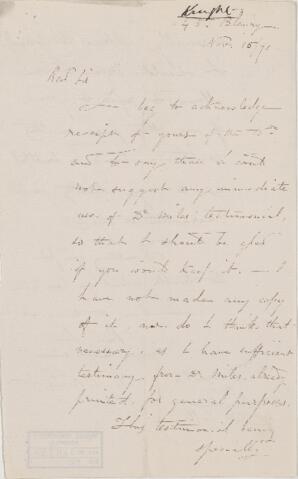 Knight
Nov. 15/71
Revd Sir
I beg to acknowledge
receipt of yours of the
and to say that I could
not suggest any immediate
use of Dr Miles' testimonial,
so that I should be glad
if you would keep it. — I
have not made any copy
of it, nor do I think that
necessary, as I have sufficient
testimony from Dr Miles already
printed for general purposes.
This testimonial being
specially